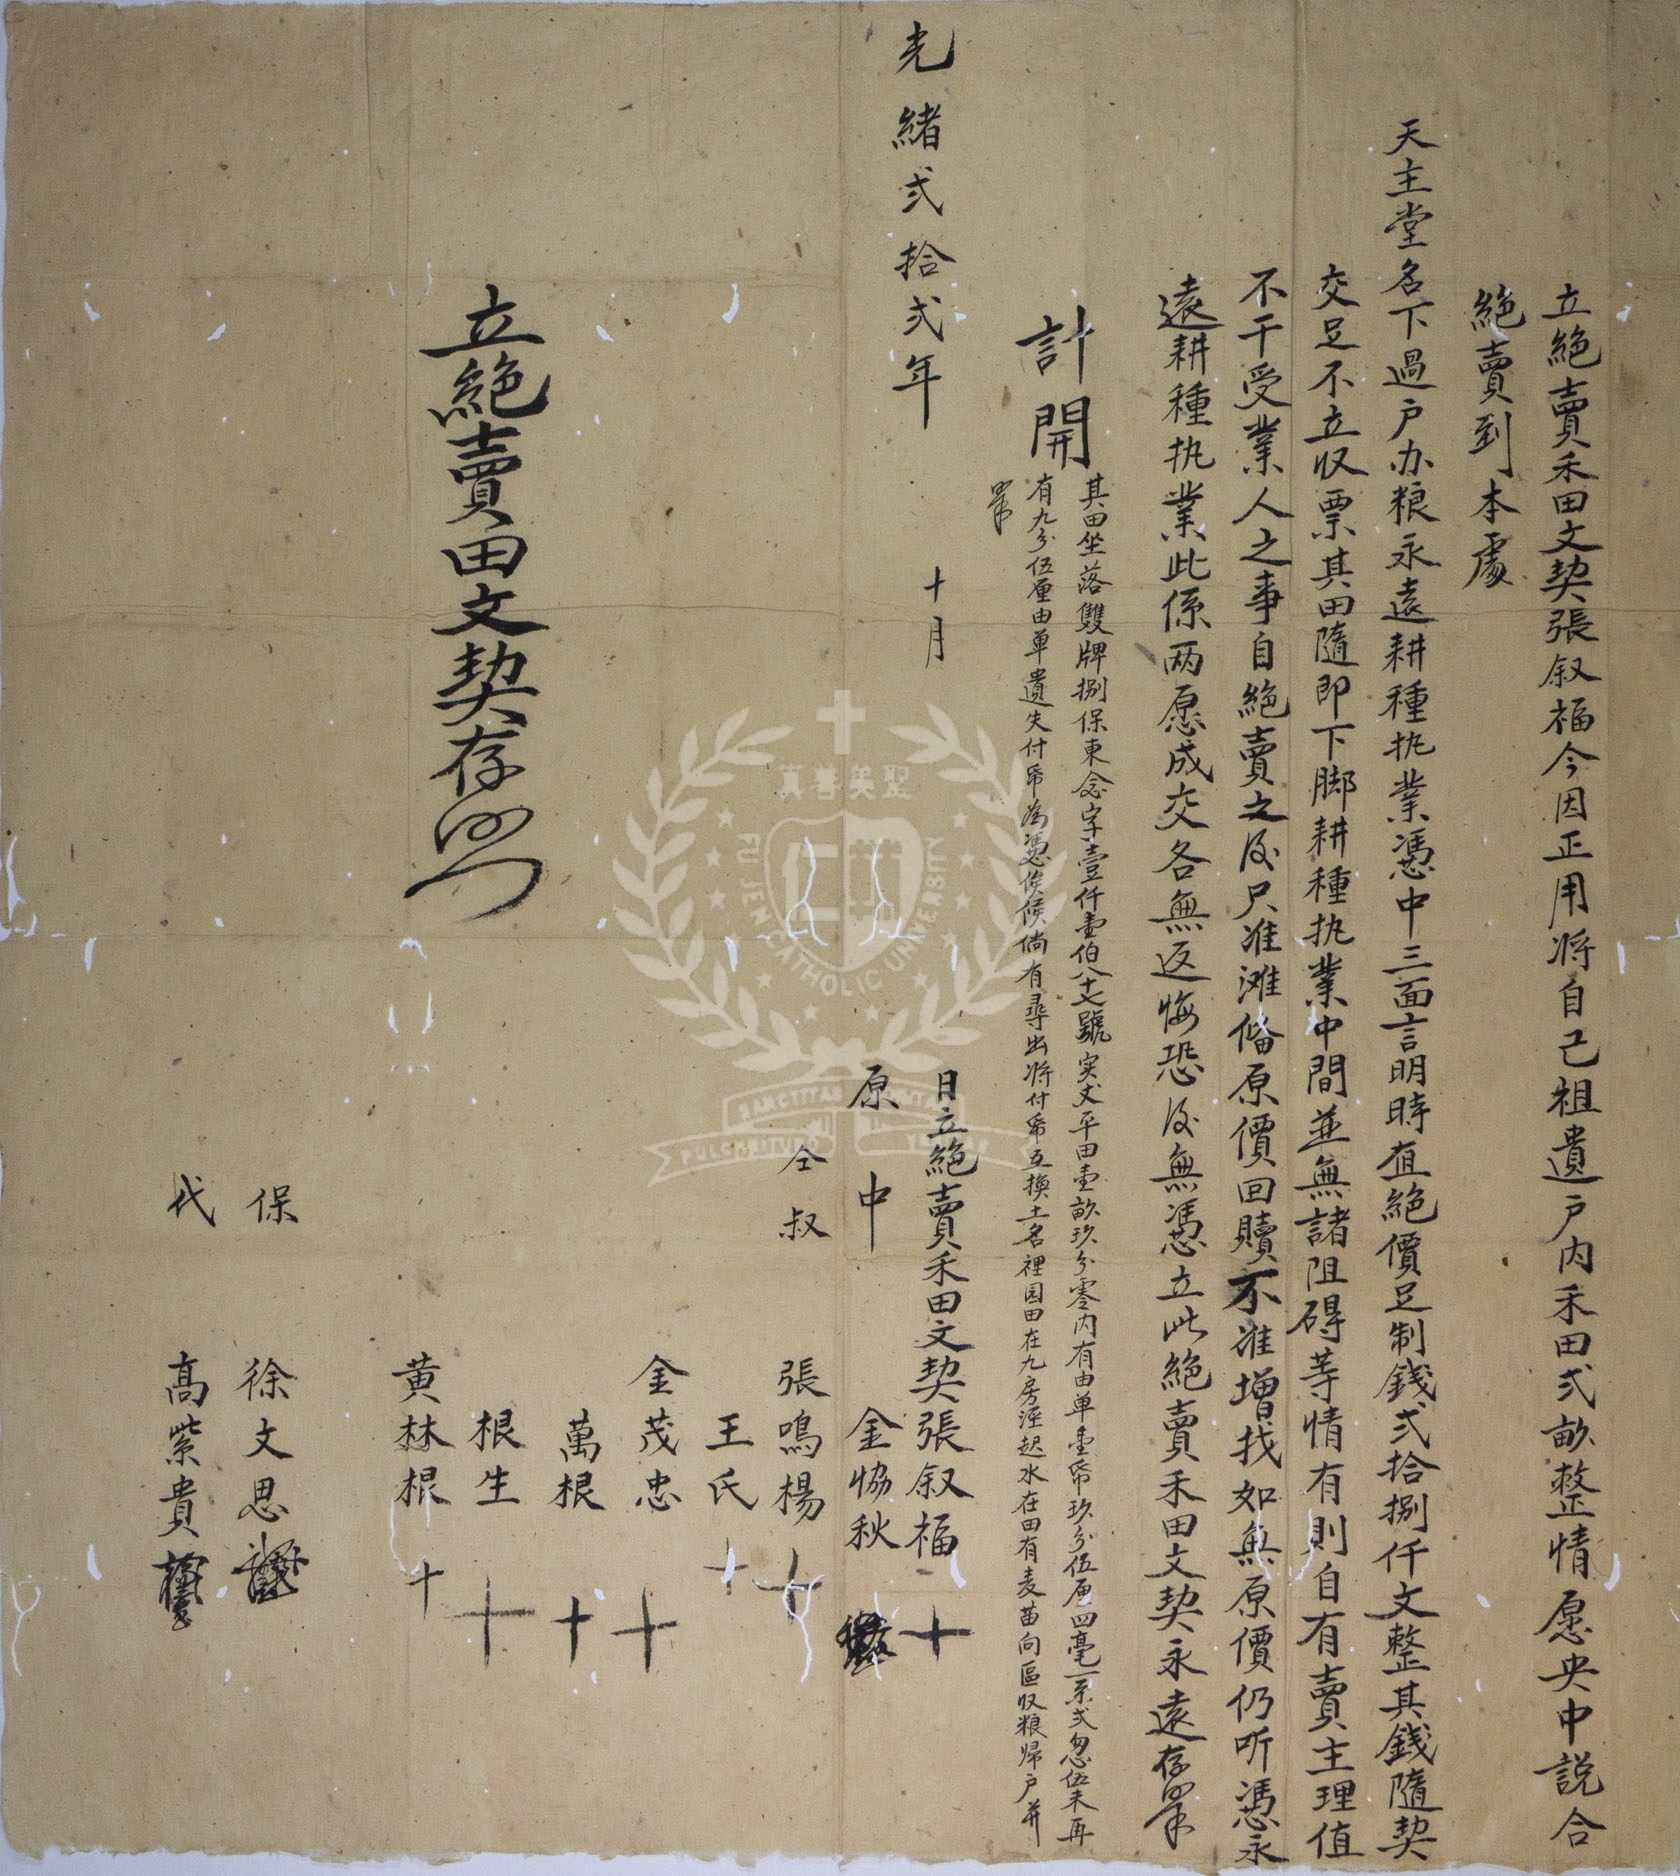 立絕賣禾田文契張叙福今因正用將自己祖遺戶内禾田弍畝整情愿央中説合
絕賣到本處
天主堂名下過户办粮永遠耕種执業憑中三面言明時值絕價足制錢弍拾捌仟文整其錢隨契
交足不立収票其田隨即下脚耕種执業中間並無諸阻碍等情有則自有賣主理值
不干受業人之事自絕賣之后只准滩俻原價回贖不准增找如無原價仍听憑永
遠耕種执業此係两愿成交各無返悔恐后無憑立此絕賣禾田文契永遠存照
計開
其田坐落雙牌捌保東念字壹仟壹伯八十七號实丈平田壹畝玖分零内有由单壹帋玖分伍厘四毫一系弍忽伍未再
有九分伍厘由单遺失付帋為憑俟候倘有尋出將付帋互換土名裡园田在九房涇起水在田有麦苗向區収粮歸户并
照
光緒弍拾弍年 十月 日立絕賣禾田文契張叙福 十
原中 金協秋
仝叔 張鳴楊 十
王氏 十
金茂忠 十
萬根 十
根生 十
黄林根 十
立絕賣田文契存照
保 徐文思
代 高紫貴
真善美聖
FU JEN CATHOLIC UNIVERSITY
SANCTITAS BONITAS
PULCHRITUDO VERITAS